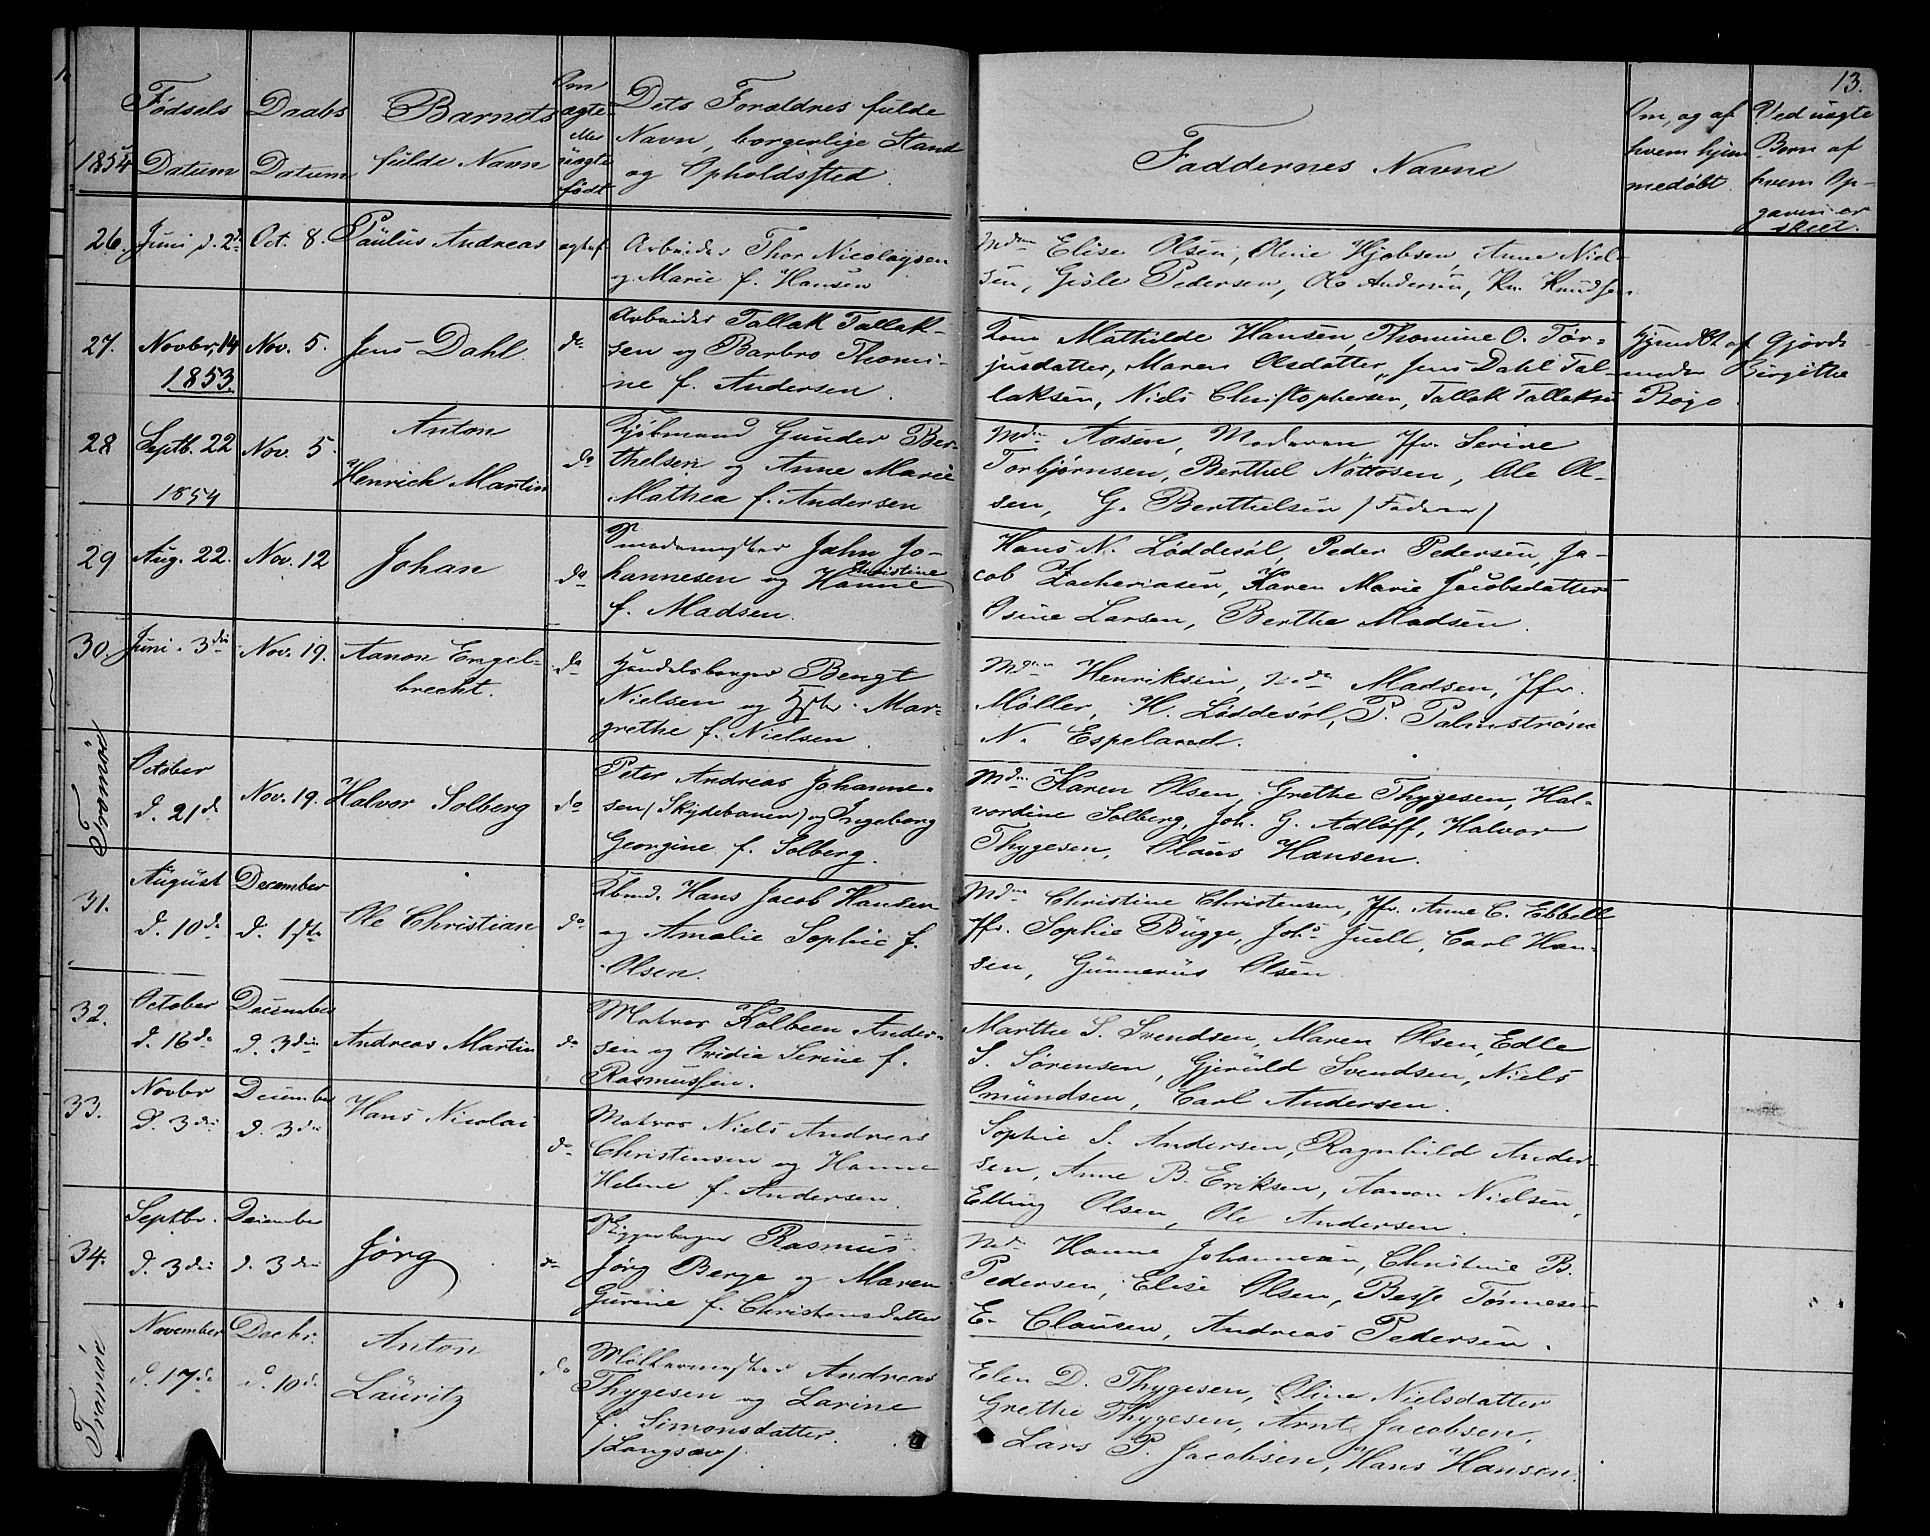 13.
1854
Fødsels Datum
Daabs Datum
Barnets fulde Navn
Om ægte eller uægte født
Dets Forældres fulde
Navn, borgerlige Stand
og Opholdssted.
Faddernes Navne
Om, og af hvem hjemmedøbt.
Ved uægte Børn af hvem Opgaven er skeet.
26. Juni d. 2d Oct. 8. Paulus Andreas ægtef.
Arbeider Thor Nicolaysen
og Marie f. Hansen
Mdm Elise Olsen, Oline Hjobsen, Anne Niel-
sen, Gisle Pedersen, O Andersen, Kn. Knudsen
27. Novbr. 14 1853. Nov. 5. Jens Dahl. do
Arbeider Tallak Tallak-
sen og Barbro Thomi-
ne f. Andersen.
Kone Mathilde Hansen, Thomine O. Tør-
jusdatter, Maren Olsdatter, Jens Dahl Tal-
laksen, Niels Christophersen, Tallak Tallaksen
hjemdøbt af Gjords-
moder Birgithe
Boye.
28 Septb. 22 1854 Nov. 5. Anton
Henrich Martin do
Kjøbmand Gunder Ber-
thelsen og Anne Marie
Mathea f. Andersen
Mdm Aasen, Moderen, Jfr. Serine
Torbjørnsen, Berthel Nøttosen, Ole Ol-
sen, G. Berthelsen /Faderen/
29 Aug. 22. Nov. 12 Johan do
Smedemester Jahn Jo-
hannesen og Hanne Christine
f. Madsen.
Hans N. Løddesøl, Peder Pedersen, Ja-
cob Zachariasen, Karen Marie Jacobsdatter
Osine Larsen, Berthe Madsen.
30. Juni. 3die Nov. 19. Aanon Engel-
brecht. do
Handelsborger Bengt
Nielsen og Hstr. Mar-
grethe f. Nielsen.
Mdm Henriksen, Mdm Madsen, Jfr.
Møller, H. Løddesøl, P. Palmstrøm
N. Espeland.
Tromøe
October
d. 21de Nov. 19. Halvor Solberg do
Peter Andreas Johanne-
sen (Skydebanen) og Ingeborg
Georgine f. Solberg.
Mdm Karen Olsen, Grethe Thygesen, Hal-
vordine Solberg, Joh. G. Adloff, Halvor
Thygesen, Olaus Hansen.
31. August
d. 10de December
d. 1ste Ole Christian do
Kbmd. Hans Jacob Hansen
og Amalie Sophie f.
Olsen.
Mdm Christine Christensen, Jfr. Anne C. Ebbell
Jfr. Sophie Bugge, Johs Juell, Carl Han-
sen, Gunnerius Olsen.
32. October
d. 16de December
d. 3die Andreas Martin do
Matros Kolbeen Ander-
sen og Ovidia Serine f.
Rasmussen.
Marthe S. Svendsen, Maren Olsen, Edle
S. Sørensen, Gjeruld Svendsen, Niels
Omundsen, Carl Andersen.
33. Novbr
d. 3die December
d. 3die Hans Nicolai do
Matros Niels Andreas
Christensen og Hanne
Helene f. Andersen
Sophie S. Andersen, Ragnhild Ander-
sen, Anne B. Eriksen, Aanon Nielsen,
Elling Olsen, Ole Andersen
34. Septbr.
d. 3die December
d. 3die Jørg do
Riggerborger Rasmus
Jørg Berge og Maren
Gurine f. Christensdatter
Md. Hanne Johannesen, Christine B.
Pedersen, Elise Olsen, Besse Tønnesen
E. Clausen, Andreas Pedersen.
Tromøe
November
d. 17de Decbr.
d. 10de Anton
Lauritz do
Møllermester Andreas
Thygesen og Larine
f. Simonsdatter.
/Langsæv/.
Elen D. Thygesen, Oline Nielsdatter
Grethe Thygesen, Arnt Jacobsen,
Lars P. Jacobsen, Hans Hansen.